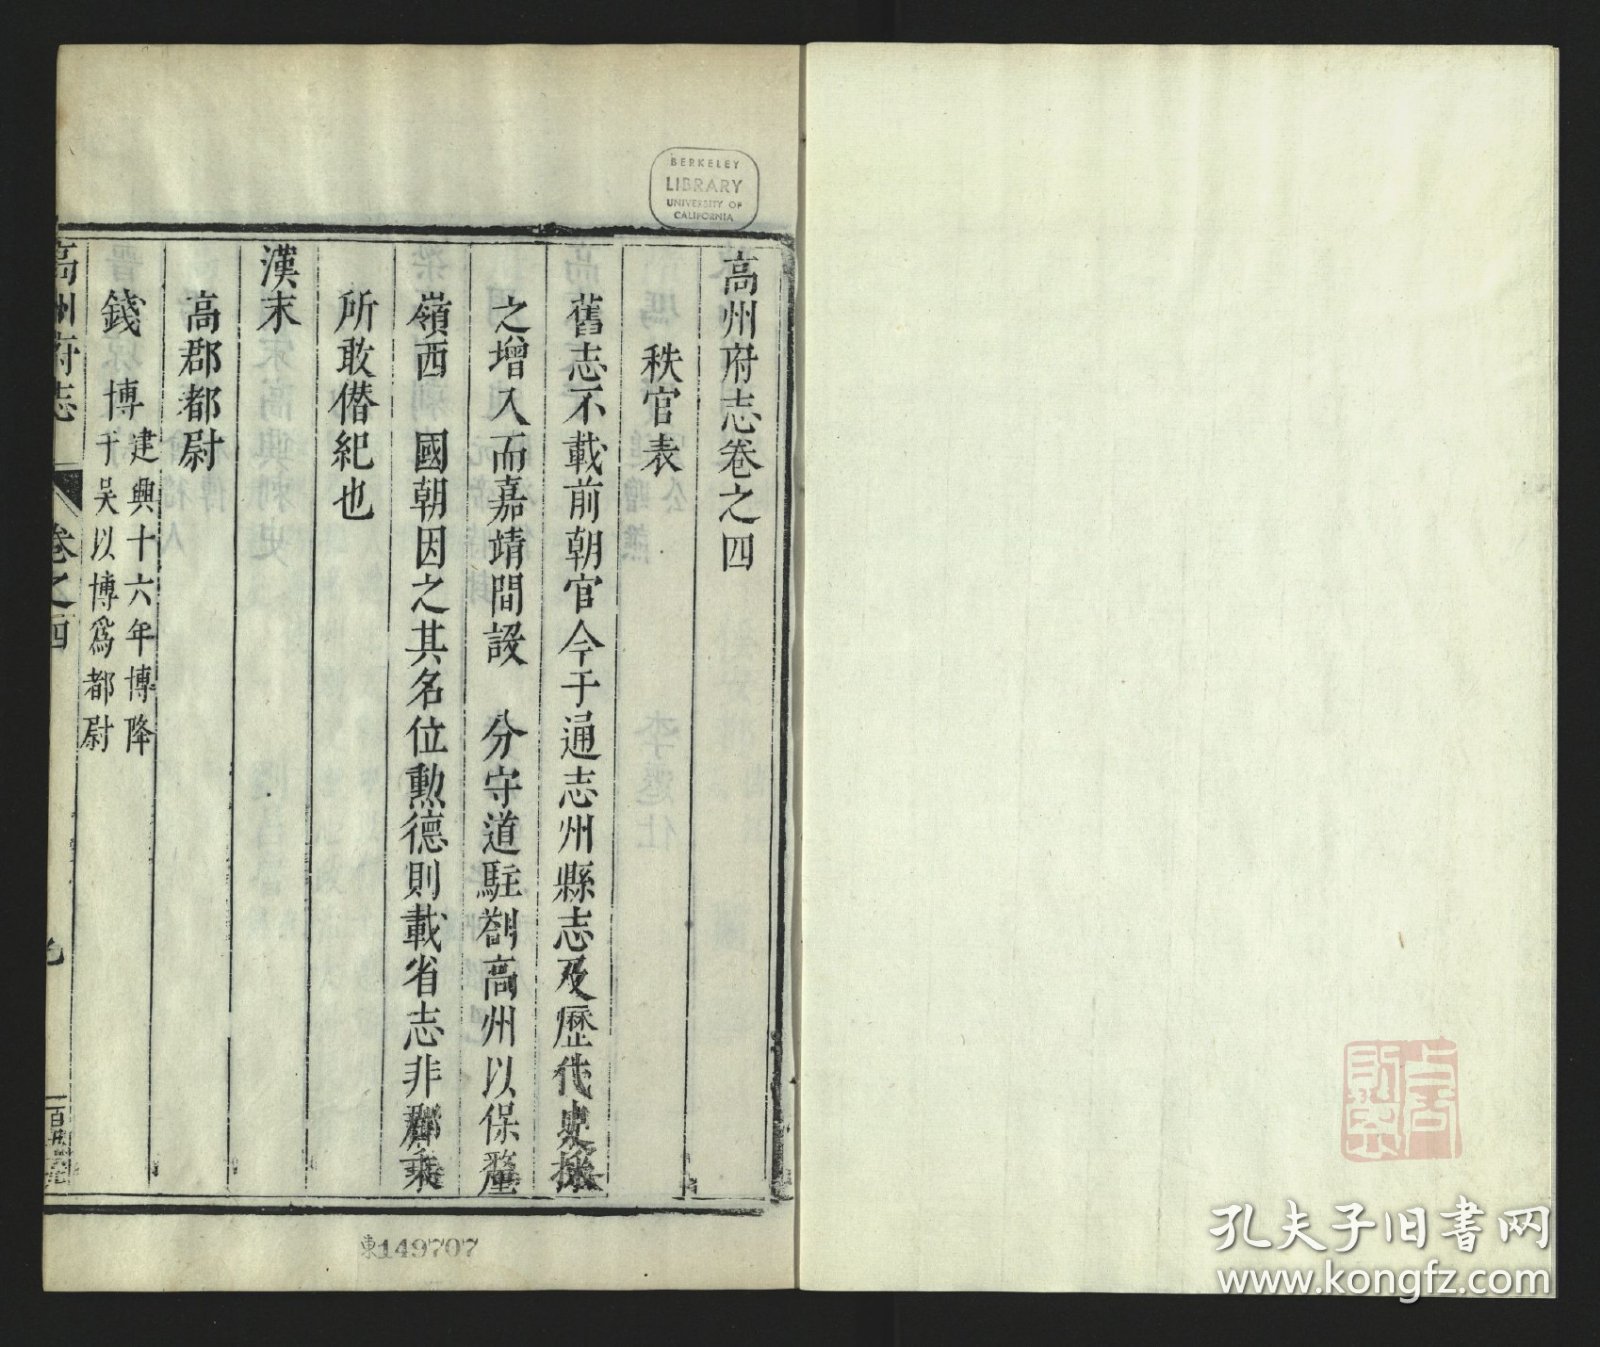 高州府志卷之四
秩官表
舊志不載前朝官今于通志州縣志及歷代史採
之增入而嘉靖間設 分守道駐劄高州以保釐
嶺西 國朝因之其名位勲德則載省志非郡乘
所敢僭紀也
漢末
高郡都尉
錢 博 建興十六年博降
于吴以博爲都尉
高州府志 卷之四
BERKELEY
LIBRARY
UNIVERSITY OF
CALIFORNIA
東149707
孔夫子旧书网
www.kongfz.com